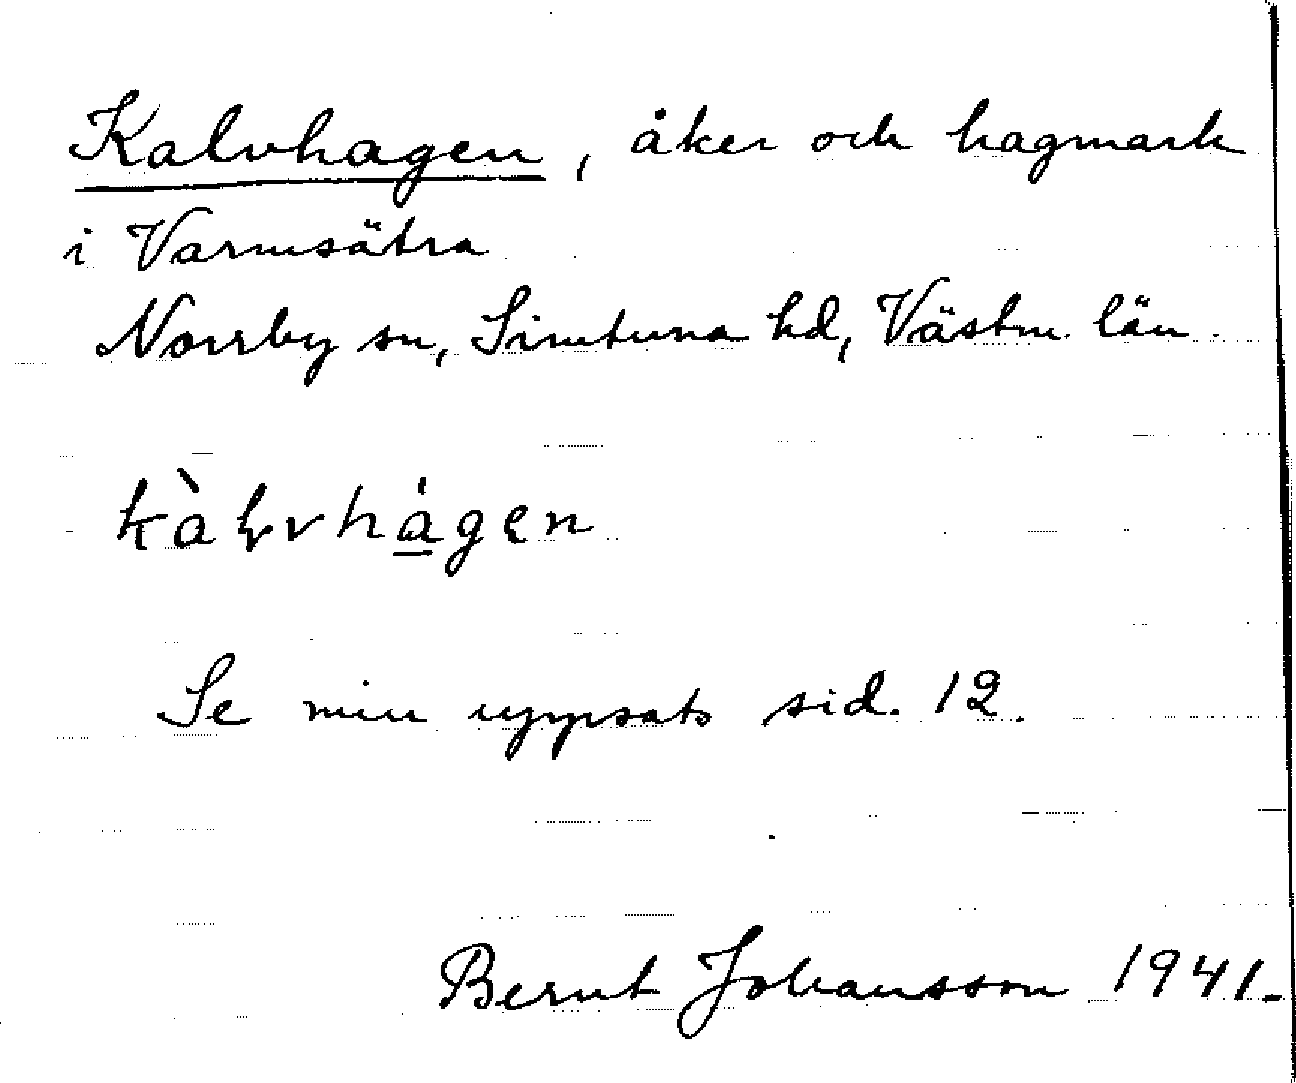 Kalvhagen, åker och hagmark
i Varmsätra
Norrby sn, Simtuna hd, Västm. län.
kàlvhágen
Se min uppsats sid. 12.
Bernt Johansson 1941.